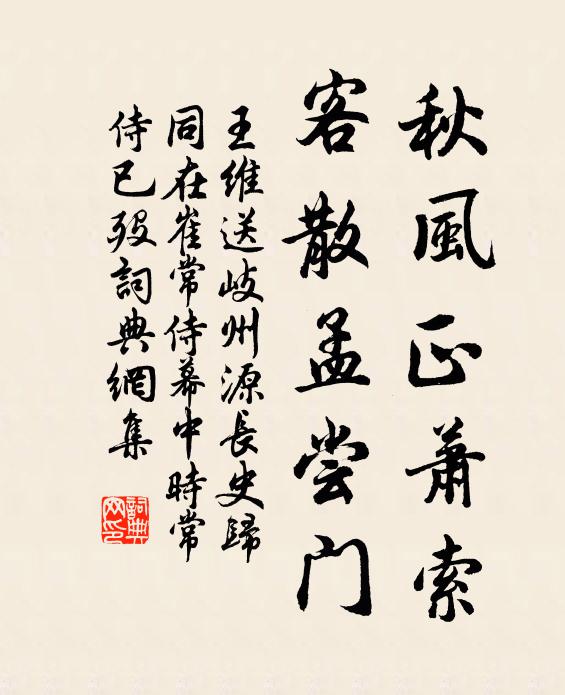 秋風正蕭索
客散孟尝門
王維送岐州源長史歸
同在崔常侍幕中時常
侍已歿詞典網集
詞典
网印